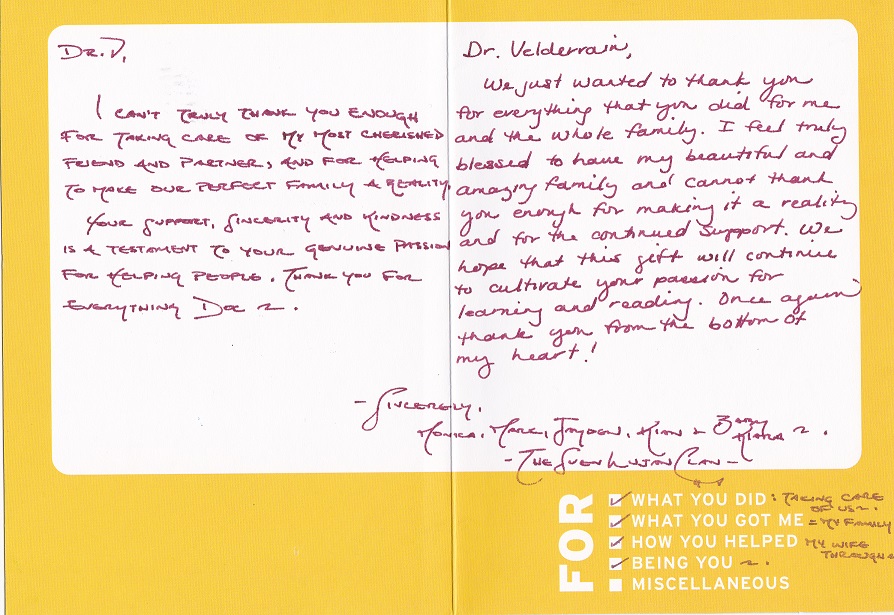 Dr. V,
I CAN'T TRULY THANK YOU ENOUGH
FOR TAKING CARE OF MY MOST CHERISHED
FRIEND AND PARTNER, AND FOR HELPING
TO MAKE OUR PERFECT FAMILY A REALITY.
YOUR SUPPORT, SINCERITY AND KINDNESS
IS A TESTAMENT TO YOUR GENUINE PASSION
FOR HELPING PEOPLE. THANK YOU FOR
EVERYTHING DOC
Dr. Velderrain,
We just wanted to thank you
for everything that you did for me
and the whole family. I feel truly
blessed to have my beautiful and
amazing family and cannot thank
you enough for making it a reality
and for the continued support. We
hope that this gift will continue
to cultivate your passion for
learning and reading. Once again
thank you from the bottom of
my heart!
- SINCERELY,
MONICA, MARC, JAYDEN, KIAN & BABY
KIARA
- THE CLAN -
FOR
WHAT YOU DID : TAKING CARE
OF US
WHAT YOU GOT ME = MY FAMILY
HOW YOU HELPED MY WIFE
THROUGH
BEING YOU
MISCELLANEOUS